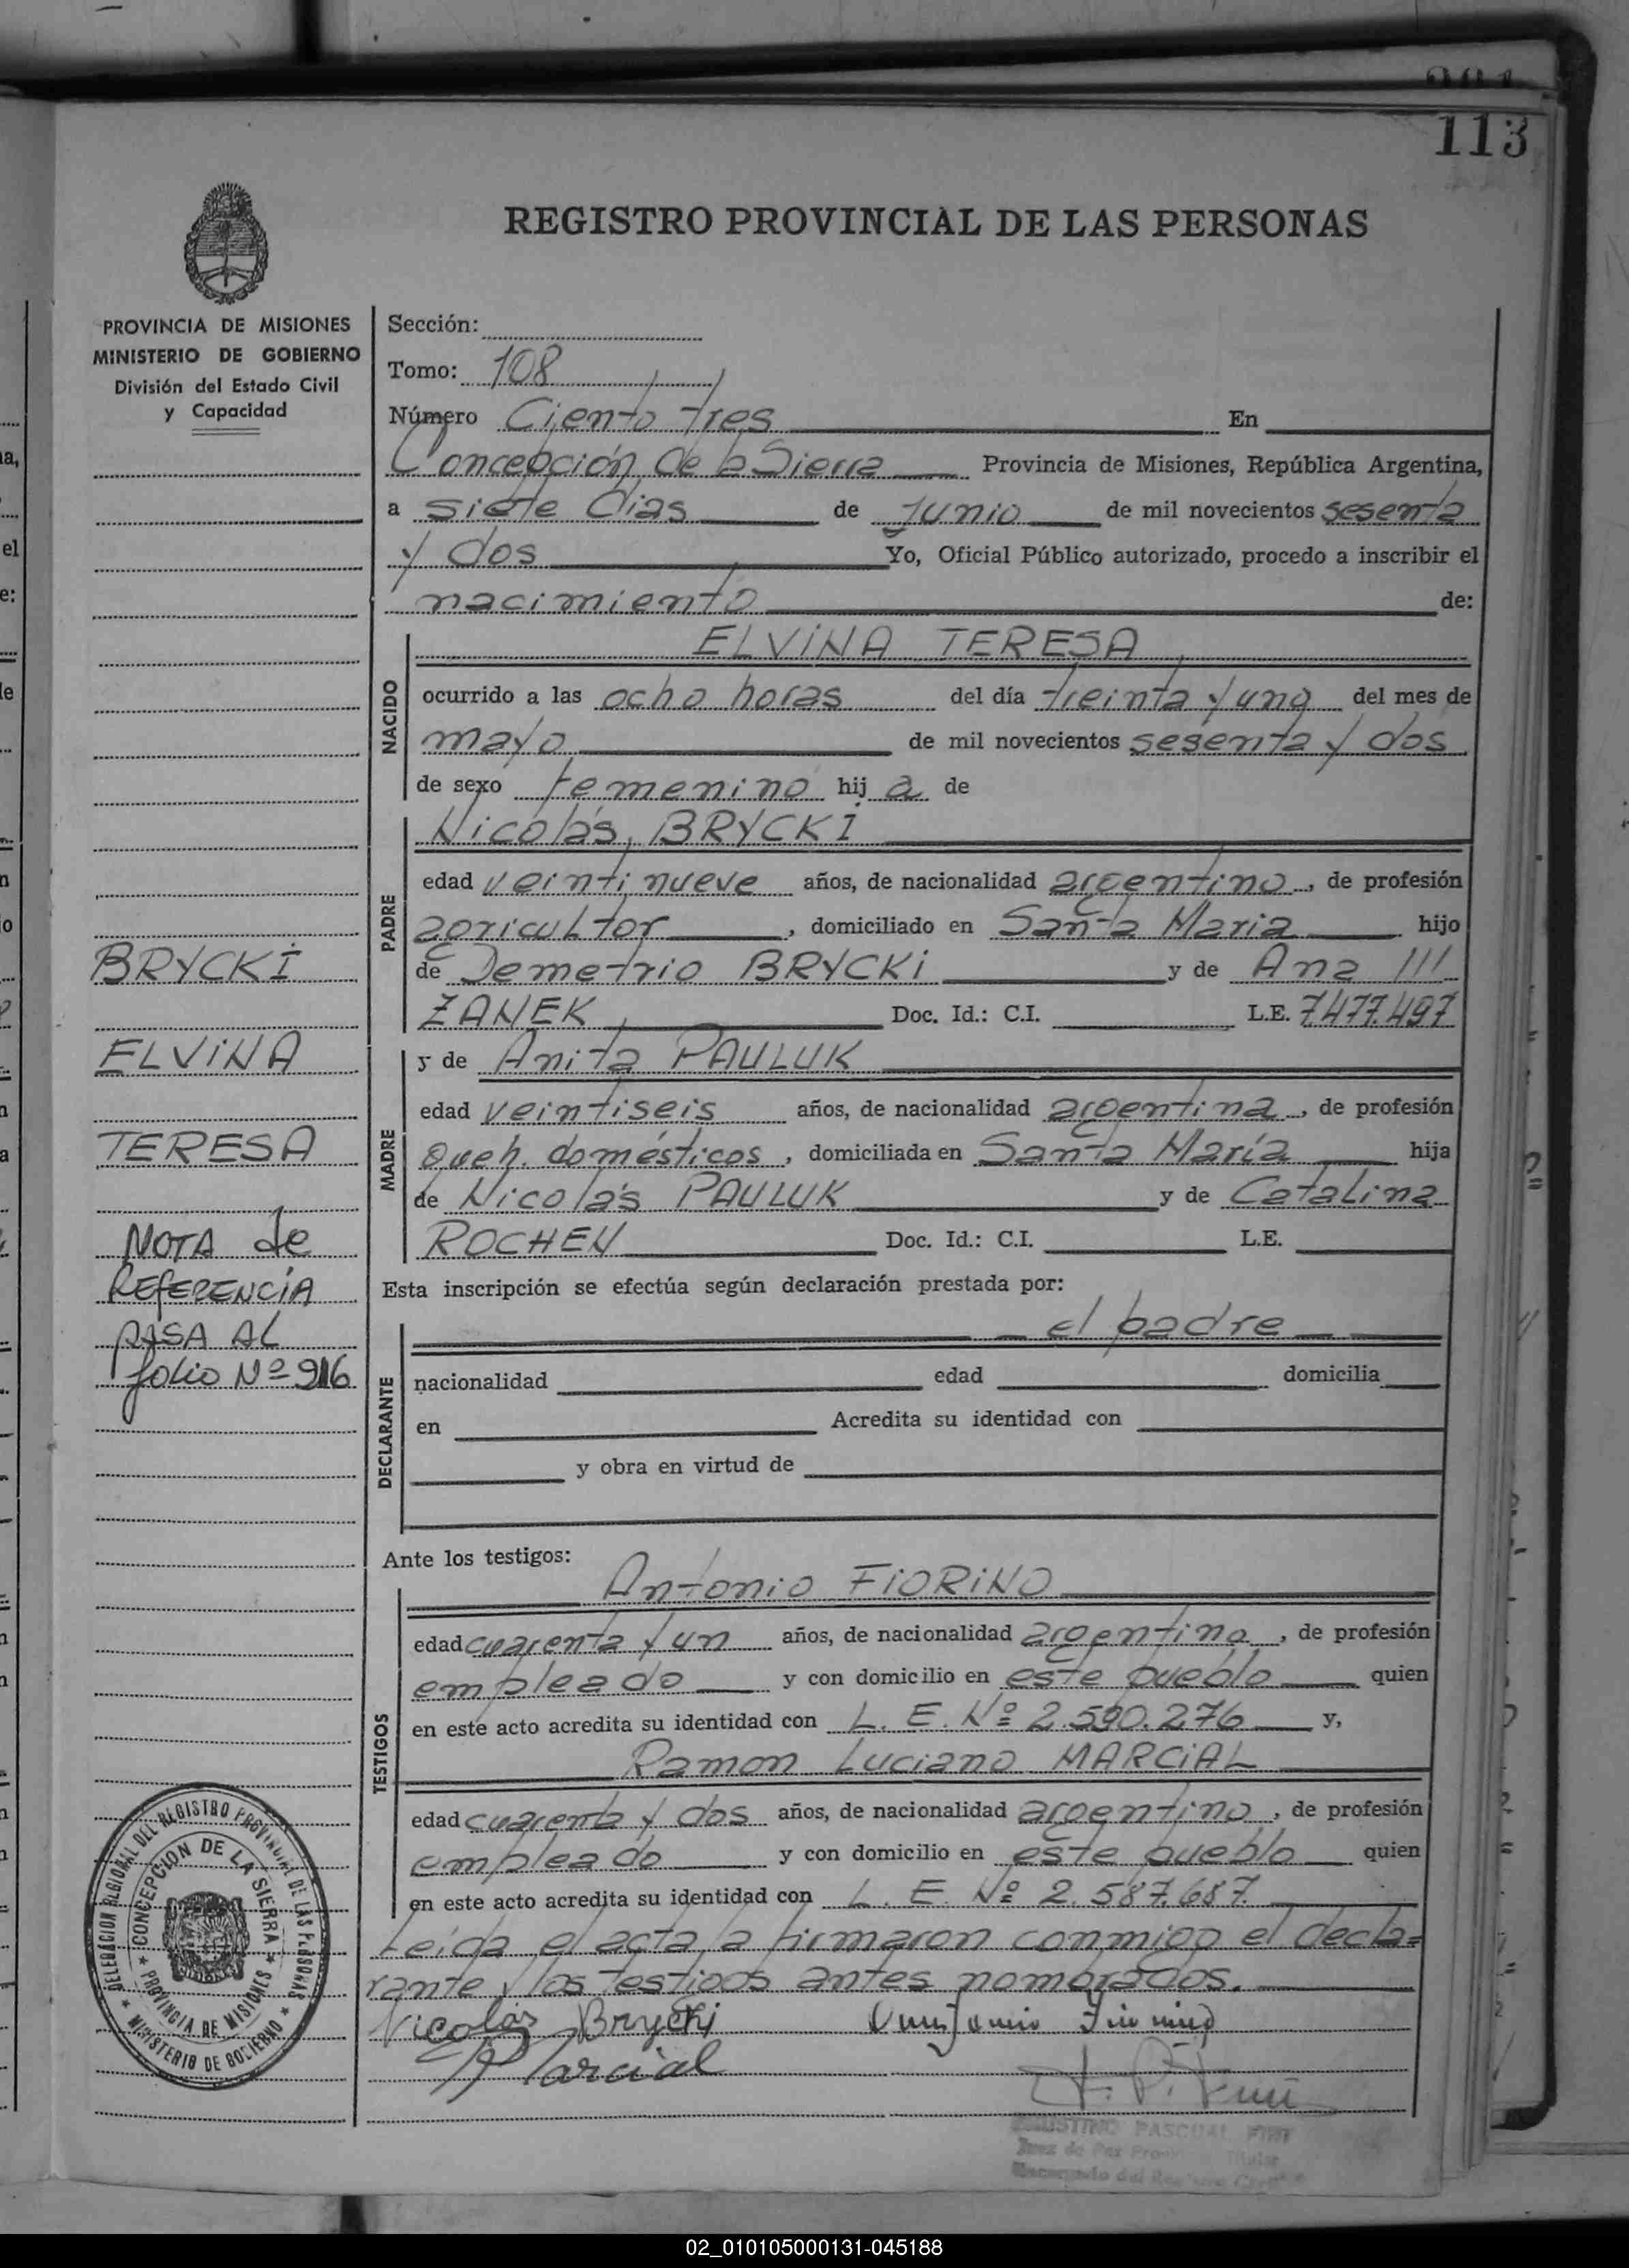 113
REGISTRO PROVINCIAL DE LAS PERSONAS
PROVINCIA DE MISIONES
MINISTERIO DE GOBIERNO
División del Estado Civil
y Capacidad
BRYCKI
ELVINA
TERESA
NOTA de
REFERENCIA
PASA AL
folio Nº 916
Sección:
Tomo: 108
Número Ciento tres En
Concepción de la Sierra Provincia de Misiones, República Argentina,
a siete dias de Junio de mil novecientos sesenta
y dos Yo, Oficial Público autorizado, procedo a inscribir el
nacimiento de:
NACIDO
ELVINA TERESA
ocurrido a las ocho horas del día treinta y uno del mes de
mayo de mil novecientos sesenta y dos
de sexo femenino hij a de
PADRE
Nicolás BRYCKI
edad veinti nueve años, de nacionalidad argentino, de profesión
agricultor, domiciliado en Santa Maria hijo
de Demetrio BRYCKI y de Ana ///
ZANEK Doc. Id.: C.I. L.E. 7.477.497
MADRE
y de Anita PAULUK
edad veintiseis años, de nacionalidad argentina, de profesión
queh. domésticos, domiciliada en Santa María hija
de Nicolás PAULUK y de Catalina
ROCHEN Doc. Id.: C.I. L.E.
Esta inscripción se efectúa según declaración prestada por:
DECLARANTE
el padre
nacionalidad edad domicilia
en Acredita su identidad con
y obra en virtud de
Ante los testigos:
TESTIGOS
Antonio FIORINO
edad cuarenta y un años, de nacionalidad argentino, de profesión
empleado y con domicilio en este pueblo quien
en este acto acredita su identidad con L. E. Nº 2.590.276 y,
Ramon Luciano MARCIAL
edad cuarenta y dos años, de nacionalidad argentino, de profesión
empleado y con domicilio en este pueblo quien
en este acto acredita su identidad con L. E. Nº 2.587.687.
Leída el acta, la firmaron conmigo el decla=
rante y los testigos antes nombrados.
Nicolás Brycki
Marcial
DELEGACION REGIONAL DEL REGISTRO PROVINCIAL DE LAS PERSONAS
CONCEPCION DE LA SIERRA
PROVINCIA DE MISIONES
MINISTERIO DE GOBIERNO
PASCUAL
02_010105000131-045188